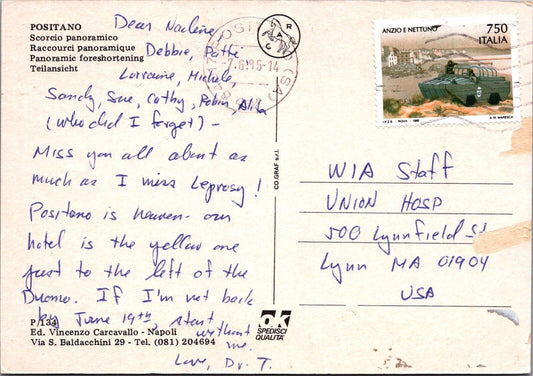 POSITANO
Scorcio panoramico
Raccourci panoramique
Panoramic foreshortening
Teilansicht
Dear Nadine,
Debbie, Pattie
Lorraine, Michele,
Sandy, Sue, Cathy, Robin, Alba
(who did I forget) -
Miss you all about as
much as I miss Leprosy!
Positano is heaven - our
hotel is the yellow one
just to the left of the
Duomo. If I'm not back
by June 19th, start
without
me.
Love, Dr. T.
P/134
Ed. Vincenzo Carcavallo - Napoli
Via S. Baldacchini 29 - Tel. (081) 204694
CO.GRAF s.r.l.
OK
SPEDISCI
QUALITÀ
ANZIO E NETTUNO
750
ITALIA
I.P.Z.S. - ROMA
A.M. MARESCA
WIA Staff
UNION HOSP
500 Lynnfield St
Lynn MA 01904
USA